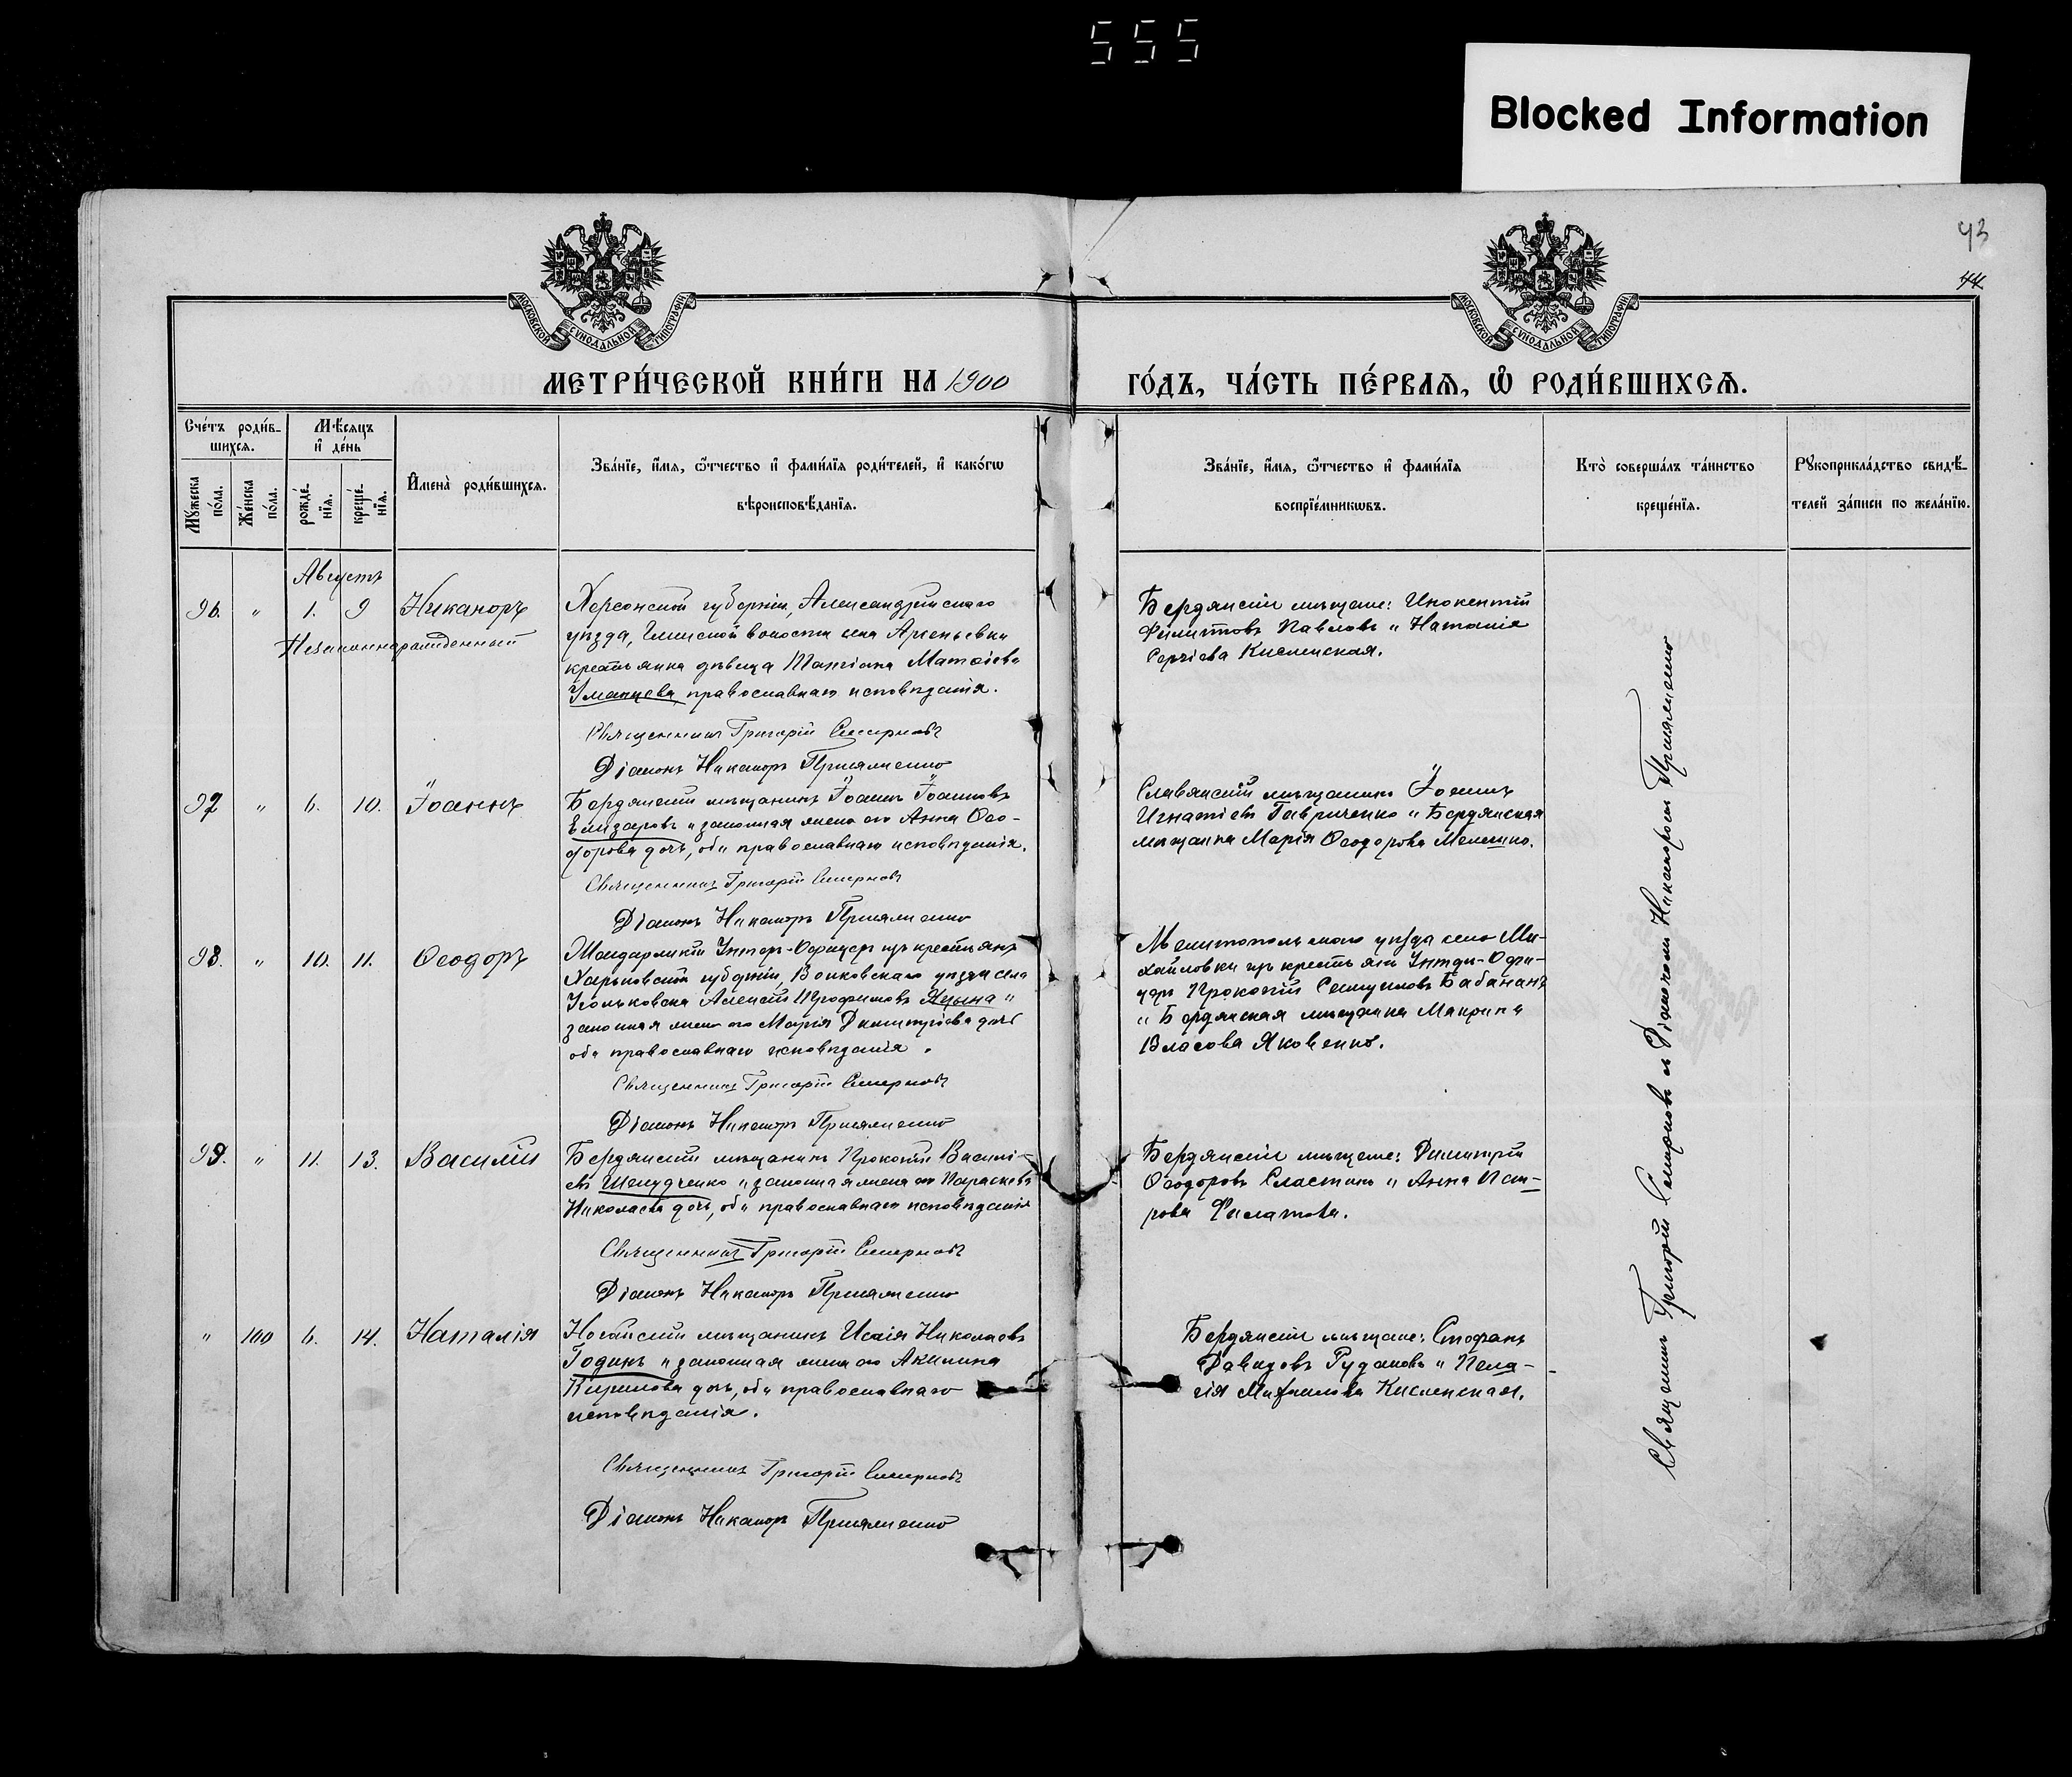 555
Blocked Information
43
44
МОСКОВСКОЙ СУНОДАЛЬНОЙ ТИПОГРАФІИ
МОСКОВСКОЙ СУНОДАЛЬНОЙ ТИПОГРАФІИ
МЕТРИ́ЧЕСКОЙ КНИ́ГИ НА 1900
ГО́ДЪ, ЧА́СТЬ ПЕ́РВАѦ, Ѡ҆ РОДИ́ВШИХСѦ.
Сче́тъ роди́в-
шихся.
Мѣ́сяцъ
и҆ де́нь
Мꙋ́жеска по́ла.
Же́нска по́ла.
рожде́-
нїя.
креще́-
нїя.
И҆мена̀ роди́вшихся.
Зва́нїе, и҆́мя, ѻ҆́тчество и҆ фами́лїя роди́телей, и҆ како́гѡ
вѣроисповѣ́данїя.
Зва́нїе, и҆́мя, ѻ҆́тчество и҆ фами́лїя
воспрїе́мникѡвъ.
Кто̀ соверша́лъ та́инство
креще́нїя.
Рꙋкоприкла́дство свидѣ́-
телей за́писи по жела́нїю.
Августъ
96. " 1. 9 Никаноръ
Незаконнорожденный
Херсонской губерніи, Александрійскаго
уѣзда, волости села Арсеньевки
крестьянка дѣвица Татіана Матѳіева
Уманцева, православнаго исповѣданія.
Священникъ Григорій Смирновъ
Діаконъ Никаноръ
Бердянскіе мѣщане: Инокентій
Филиповъ Павловъ и Наталія
Сергіева Кисленская.
97 " 6. 10. Іоаннъ
Бердянскій мѣщанинъ Іоаннъ Іоанновъ
Елизаровъ и законная жена его Анна Ѳео-
дорова дочь, оба православнаго исповѣданія.
Священникъ Григорій Смирновъ
Діаконъ Никаноръ
Славянскій мѣщанинъ Іоаннъ
Игнатіевъ Гавриченко и Бердянская
мѣщанка Марія Ѳеодорова Мелешко.
98. " 10. 11. Ѳеодоръ
Жандармскій Унтеръ-Офицеръ изъ крестьянъ
Харьковской губерніи, Волковскаго уѣзда села
Алексѣй Трофимовъ и
законная жена его Марія Димитріева дочь
оба православнаго исповѣданія.
Священникъ Григорій Смирновъ
Діаконъ Никаноръ
Мелитопольскаго уѣзда села Ми-
хайловки изъ крестьянъ Унтеръ-Офи-
церъ Прокопій Самуиловъ
и Бердянская мѣщанка Макрина
Власова Яковенко.
99. " 11. 13. Василій
Бердянскій мѣщанинъ Прокопій Василі-
евъ Шелудченко и законная жена его Параскева
Николаева дочь, оба православнаго исповѣданія
Священникъ Григорій Смирновъ
Діаконъ Никаноръ
Бердянскіе мѣщане: Димитрій
Ѳеодоровъ Сластинъ и Анна Пет-
рова Филатова.
" 100 6. 14. Наталія
Ногайскій мѣщанинъ Исаія Николаевъ
Годинъ и законная жена его Акилина
Кирилова дочь, оба православнаго
исповѣданія.
Священникъ Григорій Смирновъ
Діаконъ Никаноръ
Бердянскіе мѣщане: Стефанъ
Давидовъ Рудаковъ и Пела-
гія Михаилова Кисленская.
Священникъ Григорій Смирновъ съ Діакономъ Никаноромъ